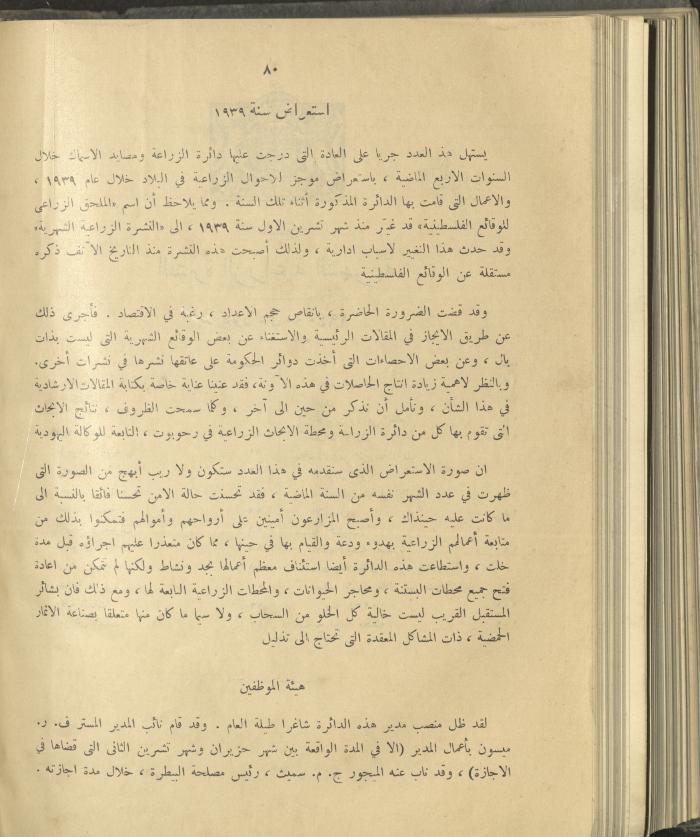 ٨٠
استعراض سنة ١٩٣٩
يستهل هذ العدد جريا على العادة التى درجت عليها دائرة الزراعة ومصايد الاسماك خلال
السنوات الاربع الماضية ، باستعراض موجز للاحوال الزراعية في البلاد خلال عام ١٩٣٩ ،
والاعمال التى قامت بها الدائرة المذكورة أثناء تلك السنة . ومما يلاحظ أن اسم «الملحق الزراعي
للوقائع الفلسطينية» قد غيّر منذ شهر تشرين الاول سنة ١٩٣٩ ، الى «النشرة الزراعية الشهرية»
وقد حدث هذا التغيير لاسباب ادارية ، ولذلك أصبحت هذه النشرة منذ التاريخ الآنف ذكره
مستقلة عن الوقائع الفلسطينية
وقد قضت الضرورة الحاضرة ، بانقاص حجم الاعداد ، رغبة في الاقتصاد . فأجرى ذلك
عن طريق الايجاز في المقالات الرئيسية والاستغناء عن بعض الوقائع الشهرية التى ليست بذات
بال ، وعن بعض الاحصاءات التى أخذت دوائر الحكومة على عاتقها نشرها في نشرات أخرى.
وبالنظر لاهمية زيادة انتاج الحاصلات في هذه الآونة، فقد عنينا عناية خاصة بكتابة المقالات الارشادية
في هذا الشأن ، ونأمل أن نذكر من حين الى آخر ، وكلما سمحت الظروف ، نتائج الابحاث
التى تقوم بها كل من دائرة الزراعة ومحطة الابحاث الزراعية في رحوبوت ، التابعة للوكالة اليهودية
ان صورة الاستعراض الذى سنقدمه في هذا العدد ستكون ولا ريب أبهج من الصورة التى
ظهرت في عدد الشهر نفسه من السنة الماضية ، فقد تحسنت حالة الامن تحسنا فائقا بالنسبة الى
ما كانت عليه حينذاك ، وأصبح المزارعون أمينين على أرواحهم وأموالهم فتمكنوا بذلك من
متابعة أعمالهم الزراعية بهدوء ودعة والقيام بها في حينها ، مما كان متعذرا عليهم اجراؤه قبل مدة
خلت ، واستطاعت هذه الدائرة أيضا استئناف معظم أعمالها بجد ونشاط ولكنها لم تتمكن من اعادة
فتح جميع محطات البستنة ، ومحاجر الحيوانات ، والمحطات الزراعية التابعة لها ، ومع ذلك فان بشائر
المستقبل القريب ليست خالية كل الخلو من السحاب ، ولا سيما ما كان منها متعلقا بصناعة الاثمار
الحمضية ، ذات المشاكل المعقدة التى تحتاج الى تذليل
هيئة الموظفين
لقد ظل منصب مدير هذه الدائرة شاغرا طيلة العام . وقد قام نائب المدير المستر ف. ر.
ميسون بأعمال المدير (الا في المدة الواقعة بين شهر حزيران وشهر تشرين الثانى التى قضاها في
الاجازة) ، وقد ناب عنه الميجور ج. م. سميث ، رئيس مصلحة البيطرة ، خلال مدة اجازته .